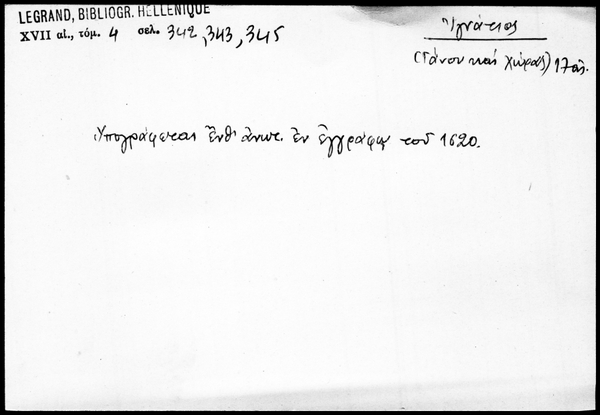 LEGRAND, BIBLIOGR. HELLENIQUE
XVII αἰ., τόμ. 4 σελ. 342, 343, 345
Ἰγνάτιος
(Γάνου καὶ Χώρας) 17 αἰ.
Ὑπογράφεται ἔνθ' ἀνωτ. ἐν ἐγγράφῳ τοῦ 1620.